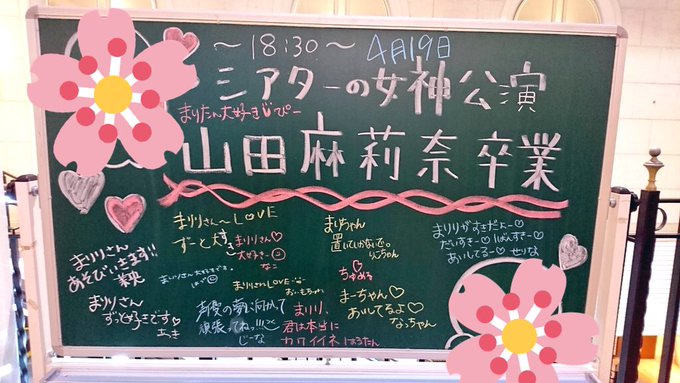 〜18:30〜 4月19日
シアターの女神公演
まりたん大好き ぴー
山田麻莉奈卒業
まりりさん〜LOVE
ずーと大好き
まりりさん♡
大好きー
なこ
まりちゃん
置いてかないで。
りこちゃん
まりりがすきだよー♡
だいすきー♡ ばんすきー♡
あいしてるー♡ せりな
まりりさん
あそびいきます!!
まりりさん大好きです。
はな
まりりさんLOVE
おいもちゃん
ちゅめろ
まりりさん
ずっと好きです♡
夢に向かって
頑張ってねっ!!!
じーな
まりり、
君は本当に
カワイイネ はるたん
まーちゃん♡
あいしてるよ♡
なっちゃん